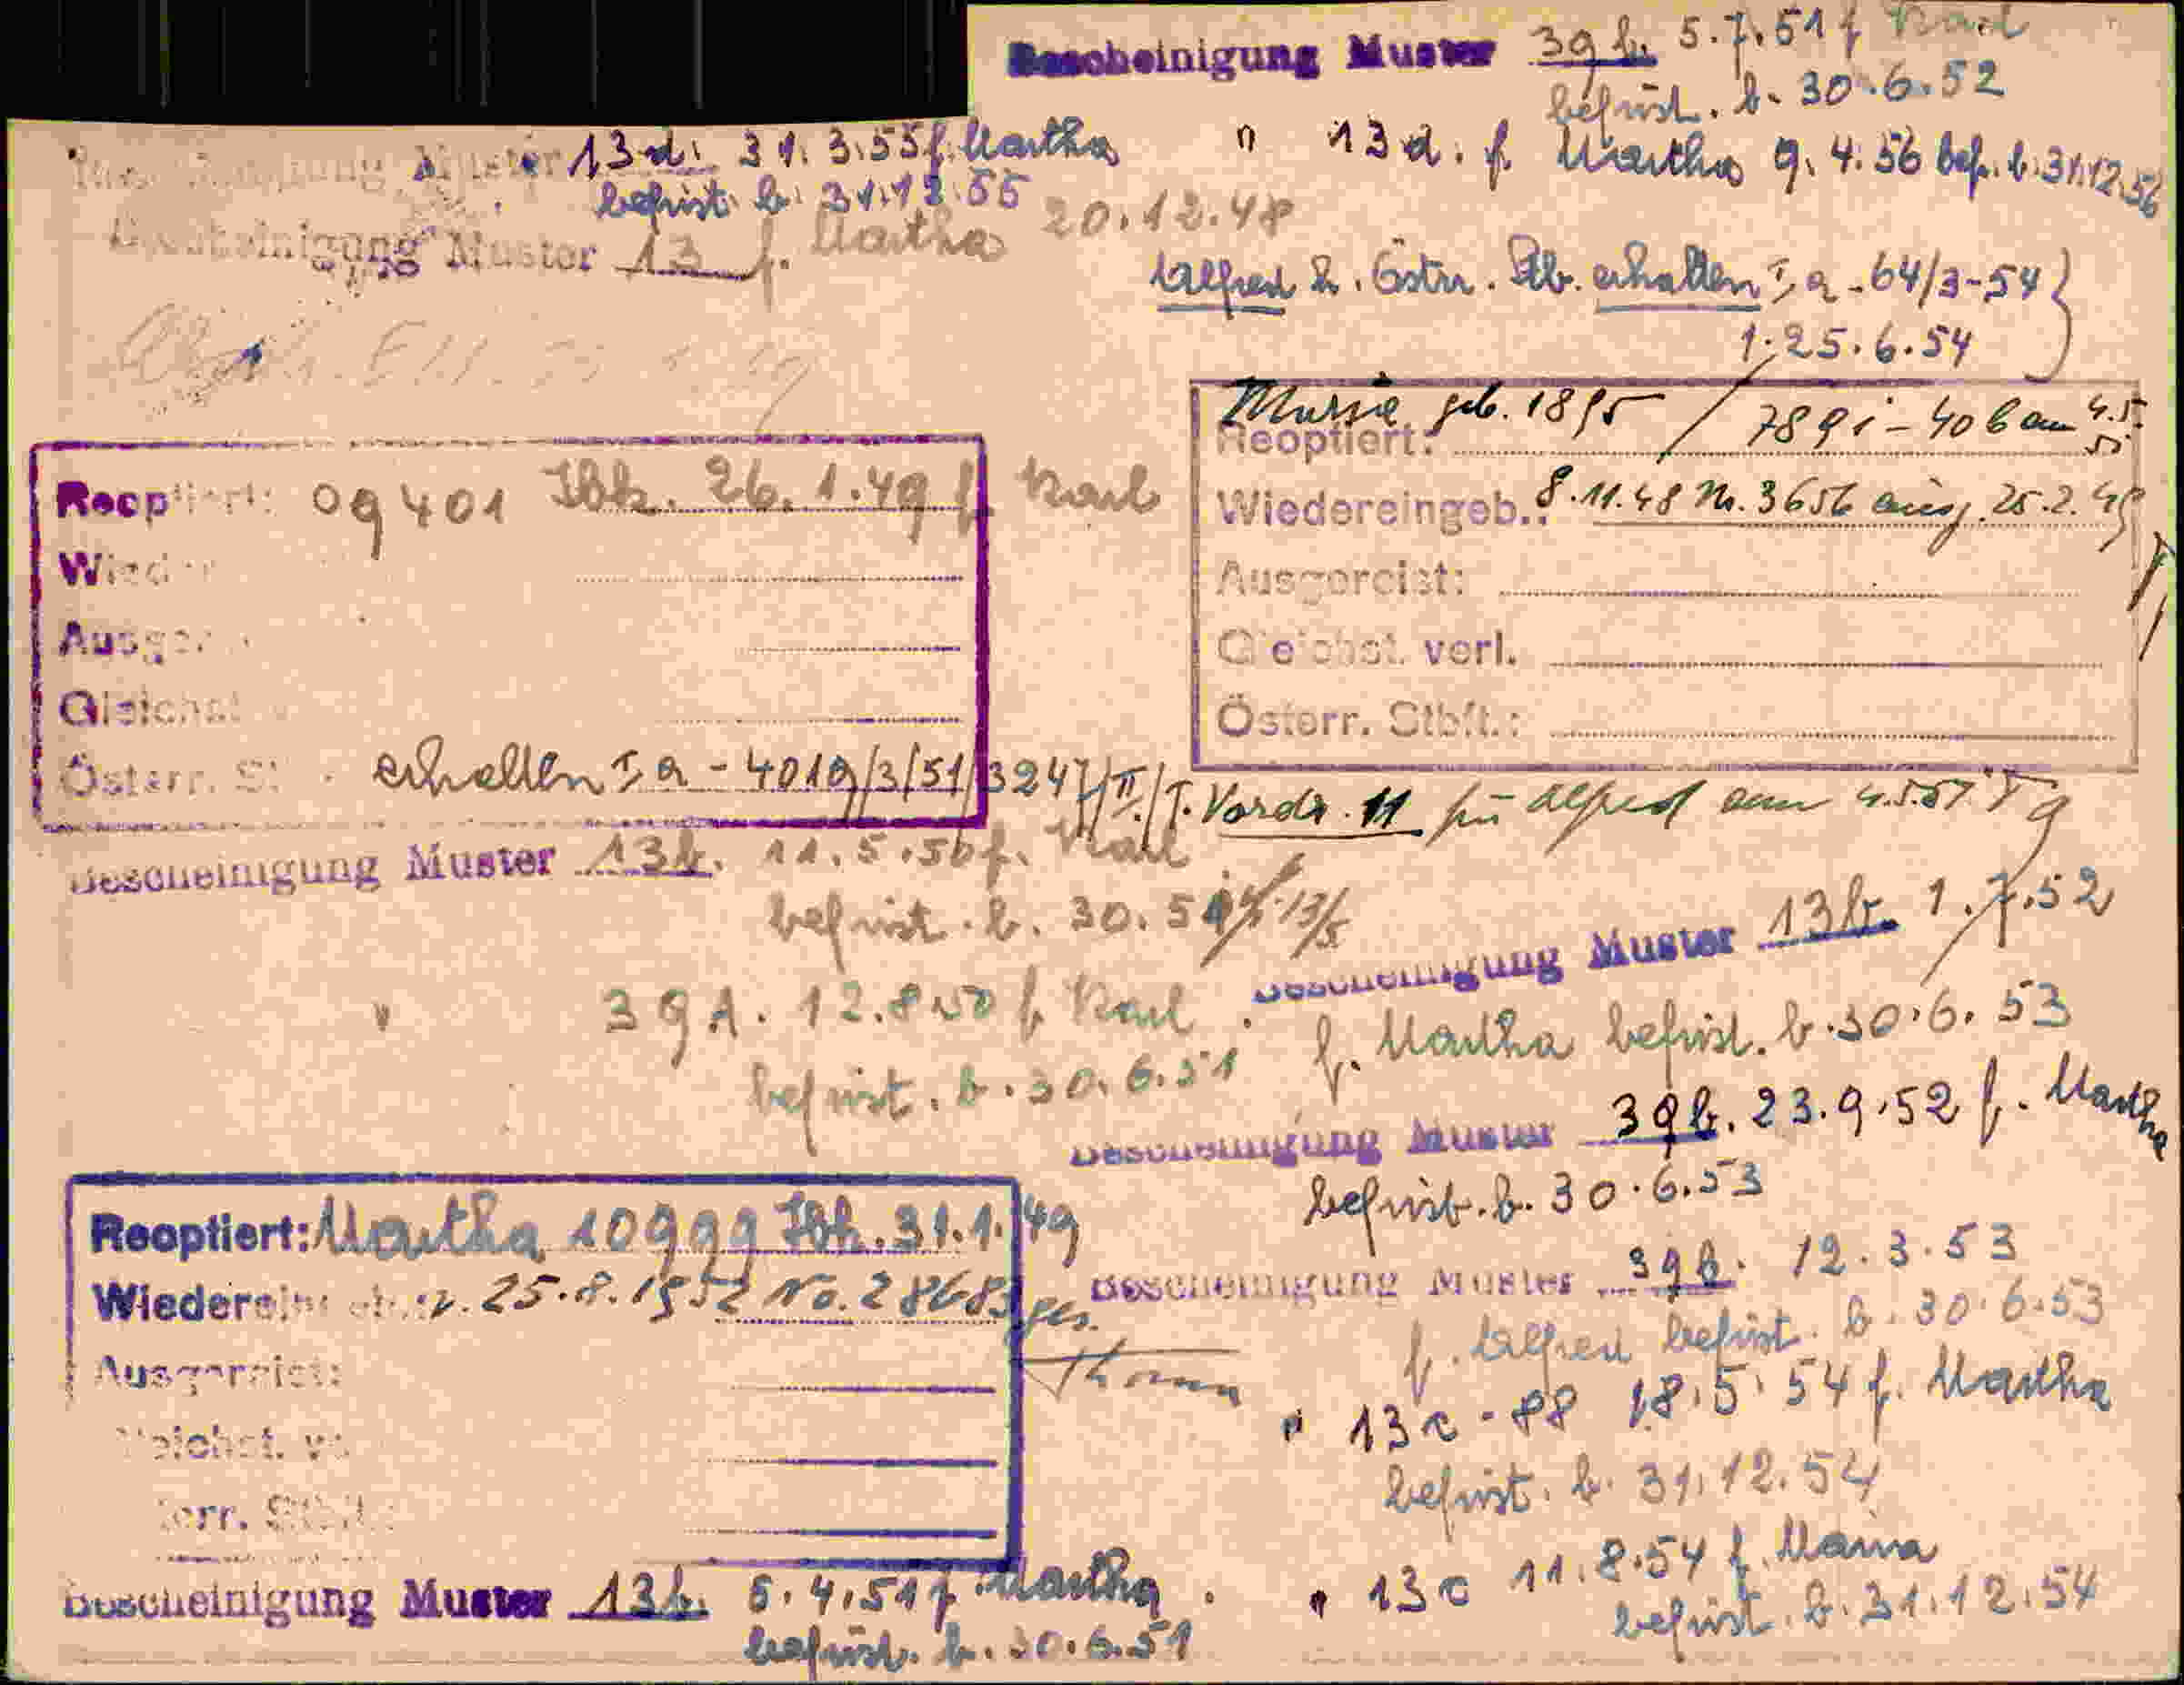 Bescheinigung Muster 39 b. 5.7.51 f Karl
befrist. b. 30.6.52
" 13 d. f. Martha 9.4.56 bef. b. 31.12.56
Muster 13 d. 31.3.55 f. Martha
befrist. b. 31.12.55
Bescheinigung Muster 13 f. Martha 20.12.48
Alfred h. Östr. Stb. erhalten I a - 64/3-54
1. 25.6.54
Reoptiert: 09401 Ibk. 26.1.49 f. Karl
Wieder
Ausger
Gleichst
Österr. St erhalten I a - 4019/3/51/3247/II/
Maria geb. 1895 / 789 i - 40 b am 4.5.51
Reoptiert:
Wiedereingeb.: 8.11.48 No. 3656 ausg. 25.2.49
Ausgereist:
Gleichst. verl.
Österr. Stbft.:
Vordr. 11 für Alfred am 4.5.51
Bescheinigung Muster 13 b. 11.5.50 f. Karl
befrist. b. 30. 13/5
" 39 A. 12.8.50 f. Karl
befrist. b. 30.6.51
Bescheinigung Muster 13 b. 1.7.52
f. Martha befrist. b. 30.6.53
Bescheinigung Muster 39 b. 23.9.52 f. Martha
befrist. b. 30.6.53
Reoptiert: Martha 10999 Ibk. 31.1.49
Wiedereingeb.: v. 25.8.1952 No. 28683 ges.
Ausgereist:
Gleichst. ve
terr. Stbft.:
Bescheinigung Muster 39 b. 12.3.53
f. Alfred befrist. b. 30.6.53
" 13 c - 88 18.5.54 f. Martha
befrist. b. 31.12.54
" 13 c 11.8.54 f. Maria
befrist. b. 31.12.54
Bescheinigung Muster 13 b. 5.4.51 f. Martha
befrist. b. 30.6.51